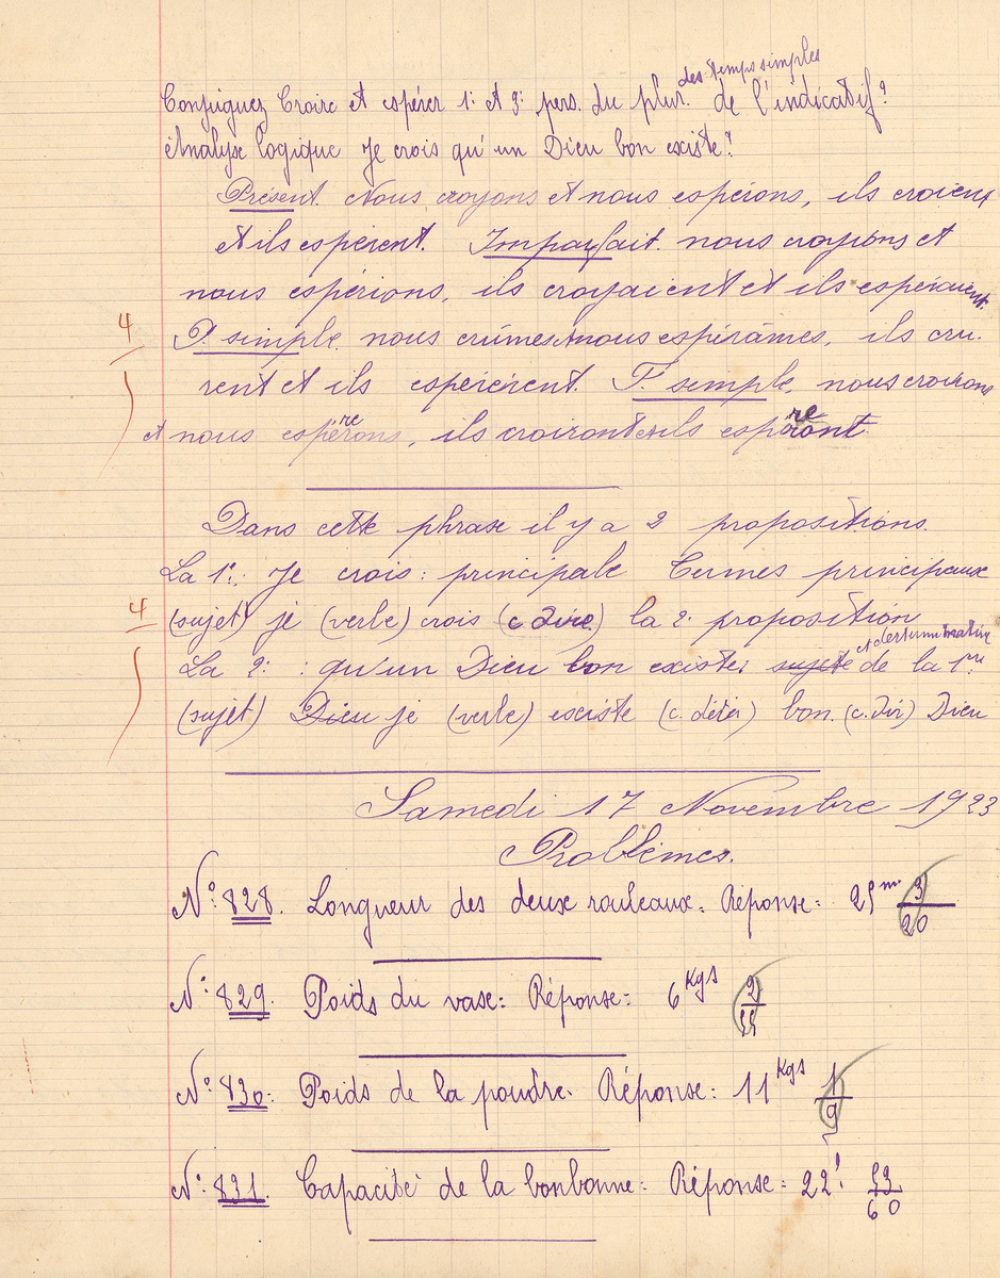 des temps simples
Conjuguez Croire et espérer 1: et 3: pers. du plur. de l'indicatif?
Analyse logique Je crois qu'un Dieu bon existe?
Présent. Nous croyons et nous espérons, ils croient
et ils espèrent. Imparfait. nous croyions et
nous espérions, ils croyaient et ils espéraient.
4
P. simple. nous crûmes et nous espérâmes, ils cru-
rent et ils espérèrent. F. simple. nous croirons
et nous espérerons, ils croiront et ils espéreront
Dans cette phrase il y a 2 propositions.
La 1e: Je crois: principale Termes principaux
4
(sujet) je (verbe) crois (c dire) la 2e proposition
et déterminative
La 2e : qu'un Dieu bon existe: sujet de la 1re
(sujet) Dieu je (verbe) existe (c. déter) bon. (c. dir) Dieu
Samedi 17 Novembre 1923
Problèmes.
N°: 828. Longueur des deux rouleaux. Réponse: 25m. 3/20
N°: 829. Poids du vase: Réponse: 6 Kgs 2/55
N°: 830: Poids de la poudre. Réponse: 11 Kgs 1/9
N°: 831. Capacité de la bonbonne: Réponse: 22l 53/60